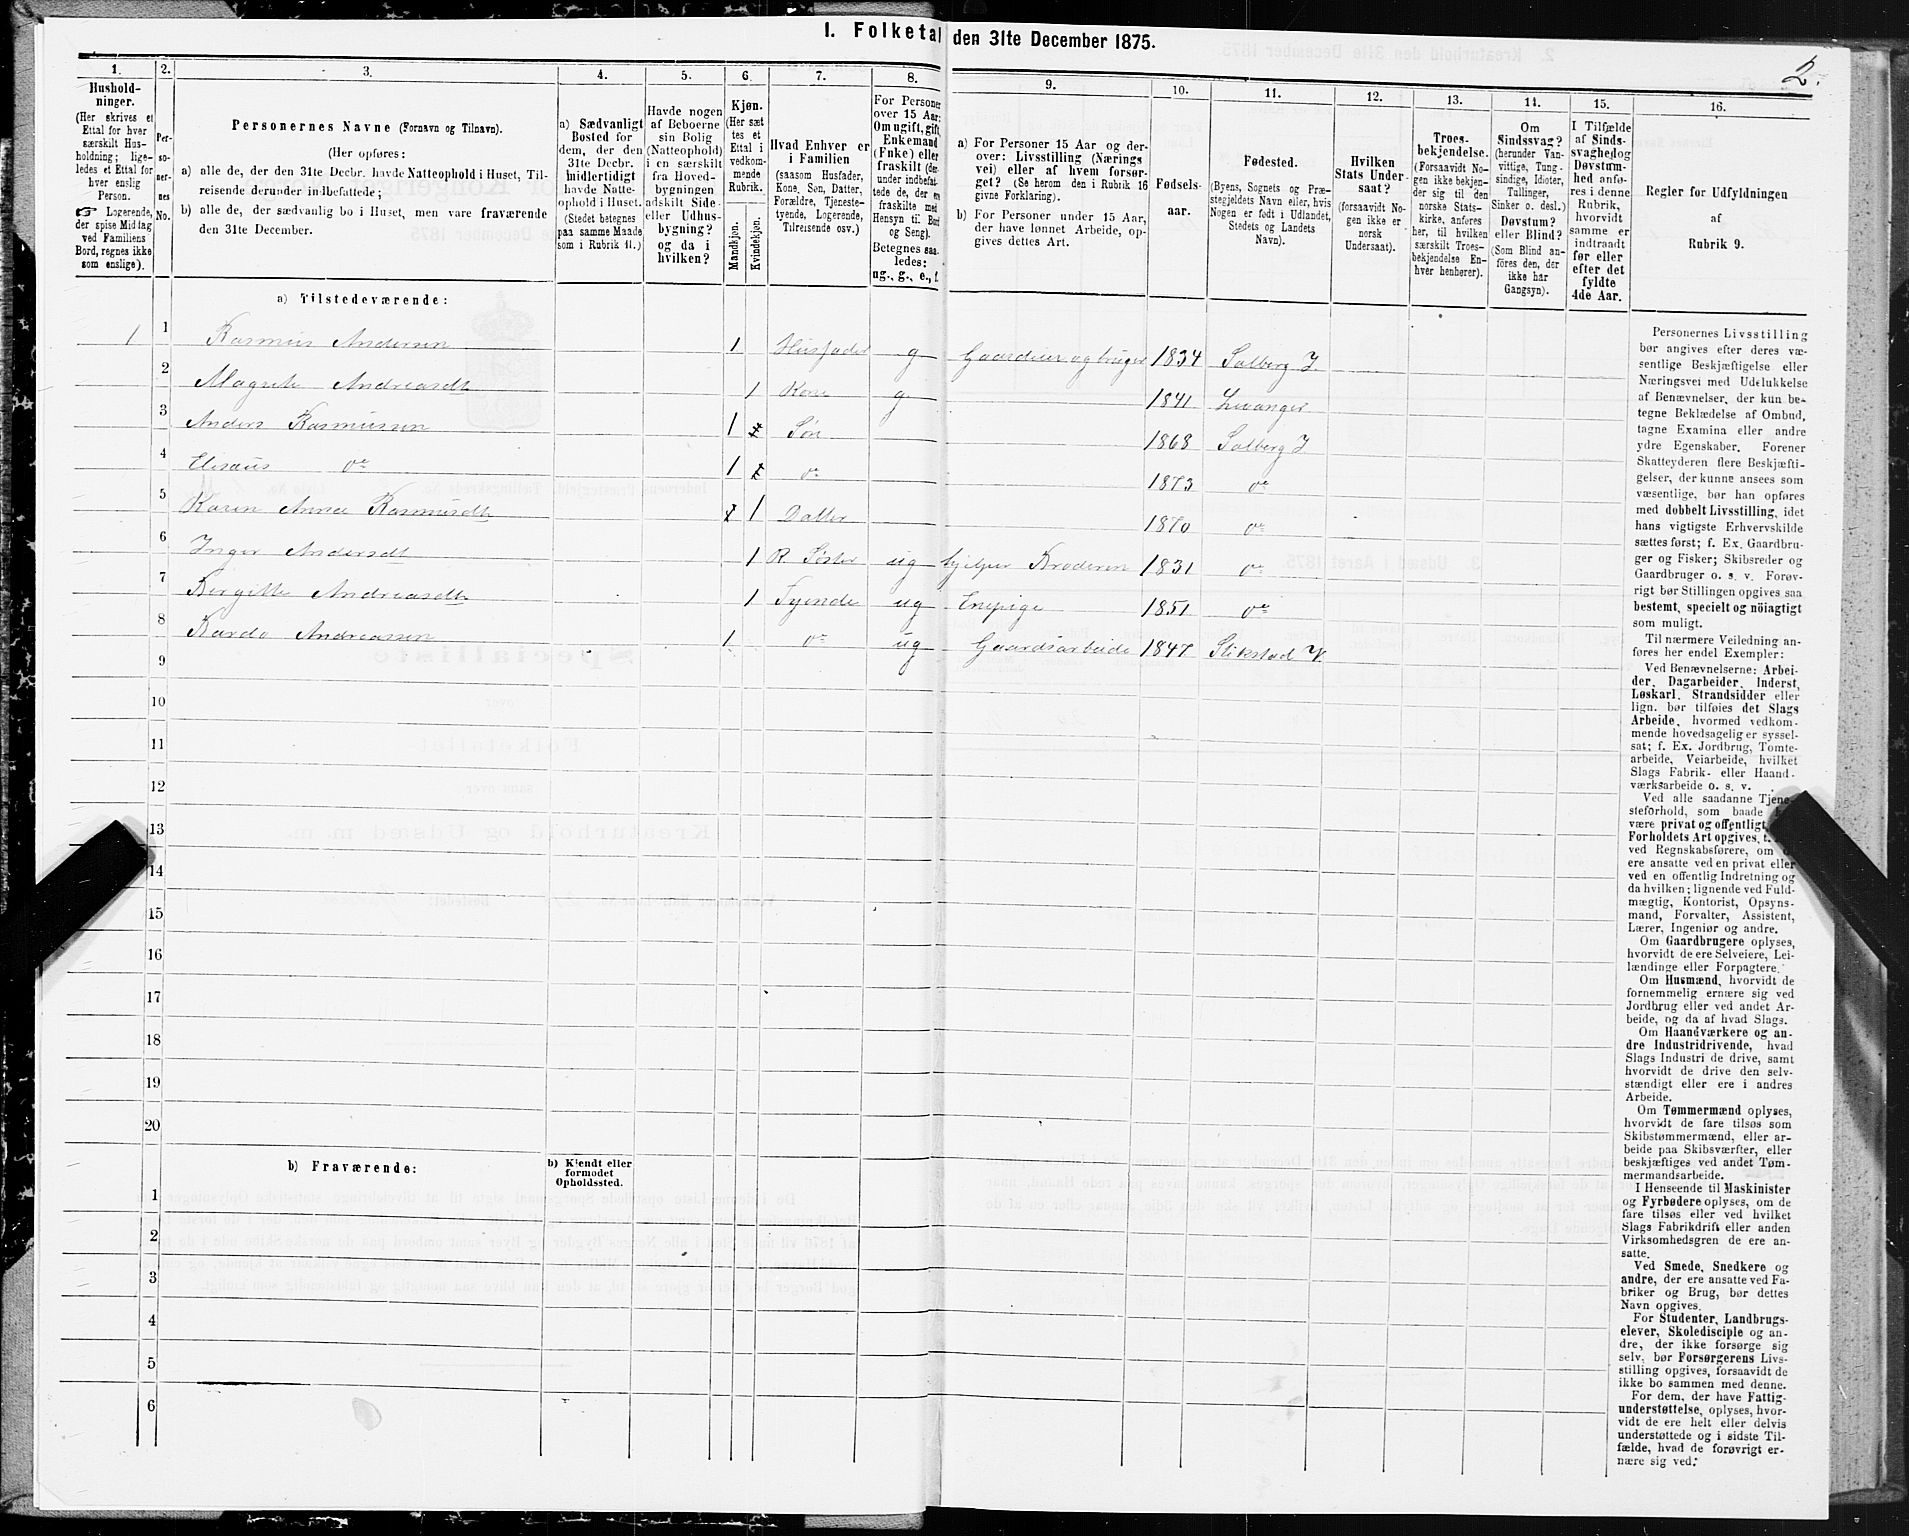 I. Folketal den 31te December 1875.
2.
1.
Hushold-
ninger.
(Her skrives et
Ettal for hver
særskilt Hus-
holdning; lige-
ledes et Ettal for
hver enslig
Person.
☞ Logerende,
der spise Middag
ved Familiens
Bord, regnes ikke
som enslige).
2.
Per-
so-
ner-
nes
No.
3.
Personernes Navne (Fornavn og Tilnavn).
(Her opføres:
a) alle de, der den 31te Decbr. havde Natteophold i Huset, Til-
reisende derunder indbefattede;
b) alle de, der sædvanlig bo i Huset, men vare fraværende
den 31te December.
4.
a) Sædvanligt
Bosted for
dem, der den
31te Decbr.
midlertidigt
havde Natte-
ophold i Huset.
(Stedet betegnes
paa samme Maade
som i Rubrik 11.)
5.
Havde nogen
af Beboerne
sin Bolig
(Natteophold)
i en særskilt
fra Hoved-
bygningen
adskilt Side-
eller Udhus-
bygning?
og da i
hvilken?
6.
Kjøn.
(Her sæt
tes et
Ettal i
vedkom-
mende
Rubrik.
Mandkjøn.
Kvindekjøn.
7.
Hvad Enhver er
i Familien
(saasom Husfader,
Kone, Søn, Datter,
Forældre, Tjeneste-
tyende, Logerende,
Tilreisende osv.)
8.
For Personer
over 15 Aar:
Om ugift, gift,
Enkemand
(Enke) eller
fraskilt (der-
under indbefat-
tede de, der ere
fraskilte med
Hensyn til Bord
og Seng).
Betegnes saa-
ledes:
ug., g., e., f.
9.
a) For Personer 15 Aar og der-
over: Livsstilling (Nærings
vei) eller af hvem forsør-
get? (Se herom den i Rubrik 16
givne Forklaring).
b) For Personer under 15 Aar,
der have lønnet Arbeide, op-
gives dettes Art.
10.
Fødsels-
aar.
11.
Fødested.
(Byens, Sognets og Præ-
stegjeldets Navn eller, hvis
Nogen er født i Udlandet,
Stedets og Landets
Navn).
12.
Hvilken
Stats Under-
saat?
(forsaavidt No-
gen ikke er
norsk
Undersaat).
13.
Troes-
bekjendelse.
(Forsaavidt No-
gen ikke bekjen-
der sig til den
norske Stats-
kirke, anføres
her, til hvilken
særskilt Troes-
bekjendelse En-
hver henhører).
14.
Om
Sindssvag?
(herunder Van-
vittige, Tung-
sindige, Idioter,
Tullinger,
Sinker o. desl.)
Døvstum?
eller Blind?
(Som Blind an-
føres den, der
ikke har
Gangsyn).
15.
I Tilfælde
af Sinds-
svaghed og
Døvstum-
hed anfø-
res i denne
Rubrik,
hvorvidt
samme er
indtraadt
før eller
efter det
fyldte
4de Aar.
16.
Regler for Udfyldningen
af
Rubrik 9.
a) Tilstedeværende:
1 1 Rasmus Andersen 1 Husfader g Gaardeier og bruger 1834 Salberg I
2 Magrete Andreasdt 1 Kone g 1841 Levanger
3 Anders Rasmussen 1 Søn 1868 Salberg I
4 Elisæus do 1 do 1873 do
5 Karen Anna Rasmusdt 1 Datter 1870 do
6 Inger Andersdt 1 R. Søster ug hjelper Broderen 1831 do
7 Birgitte Andreasdt 1 Tyende ug 1851 do
8 Andreassen 1 do ug Gaardsarbeide 1847 Stikstad V.
9
10
11
12
13
14
15
16
17
18
19
20
b) Fraværende:
b) Kjendt eller
formodet
Opholdssted.
1
2
3
4
5
6
Personernes Livsstilling
bør angives efter deres væ-
sentlige Beskjæftigelse eller
Næringsvei med Udelukkelse
af Benævnelser, der kun be-
tegne Beklædelse af Ombud,
tagne Examina eller andre
ydre Egenskaber. Forener
Skatteyderen flere Beskjæfti-
gelser, der kunne ansees som
væsentlige, bør han opføres
med dobbelt Livsstilling, idet
hans vigtigste Erhvervskilde
sættes først; f. Ex. Gaardbru-
ger og Fisker; Skibsreder og
Gaardbruger o. s. v. Forøv-
rigt bør Stillingen opgives saa
bestemt, specielt og nöiagtigt
som muligt.
Til nærmere Veiledning an-
føres her endel Exempler:
Ved Benævnelserne: Arbei-
der, Dagarbeider, Inderst,
Løskarl, Strandsidder eller
lign. bør tilføies det Slags
Arbeide, hvormed vedkom-
mende hovedsagelig er syssel-
sat; f. Ex. Jordbrug, Tomte-
arbeide, Veiarbeide, hvilket
Slags Fabrik- eller Haand-
værksarbeide o. s. v.
Ved alle saadanne Tjene-
steforhold, som baade
være privat og offentligt,
Forholdets Art opgives,
ved Regnskabsførere, om
ere ansatte ved en privat eller
ved en offentlig Indretning og
da hvilken; lignende ved Fuld-
mægtig, Kontorist, Opsyns-
mand, Forvalter, Assistent,
Lærer, Ingeniør og andre.
Om Gaardbrugere oplyses,
hvorvidt de ere Selveiere, Lei-
lændinge eller Forpagtere.
Om Husmænd, hvorvidt de
fornemmelig ernære sig ved
Jordbrug eller ved andet Ar-
beide, og da af hvad Slags.
Om Haandværkere og an-
dre Industridrivende, hvad
Slags Industri de drive, samt
hvorvidt de drive den selv-
stændigt eller ere i andres
Arbeide.
Om Tømmermænd oplyses,
hvorvidt de fare tilsøs som
Skibstømmermænd, eller ar-
beide paa Skibsværfter, eller
beskjæftiges ved andet Tøm-
mermandsarbeide.
I Henseende til Maskinister
og Fyrbødere oplyses, om de
fare tilsøs eller ved hvilket
Slags Fabrikdrift eller anden
Virksomhedsgren de ere an-
satte.
Ved Smede, Snedkere og
andre, der ere ansatte ved Fa-
briker og Brug, bør dettes
Navn opgives.
For Studenter, Landbrugs-
elever, Skoledisciple og an-
dre, der ikke forsørge sig
selv, bør Forsørgerens Livs-
stilling opgives, forsaavidt de
ikke bo sammen med denne.
For dem, der have Fattig-
understøttelse, oplyses, hvor-
vidt de ere helt eller delvis
understøttede og i sidste Til-
fælde, hvad de forøvrigt er-
nære sig ved.